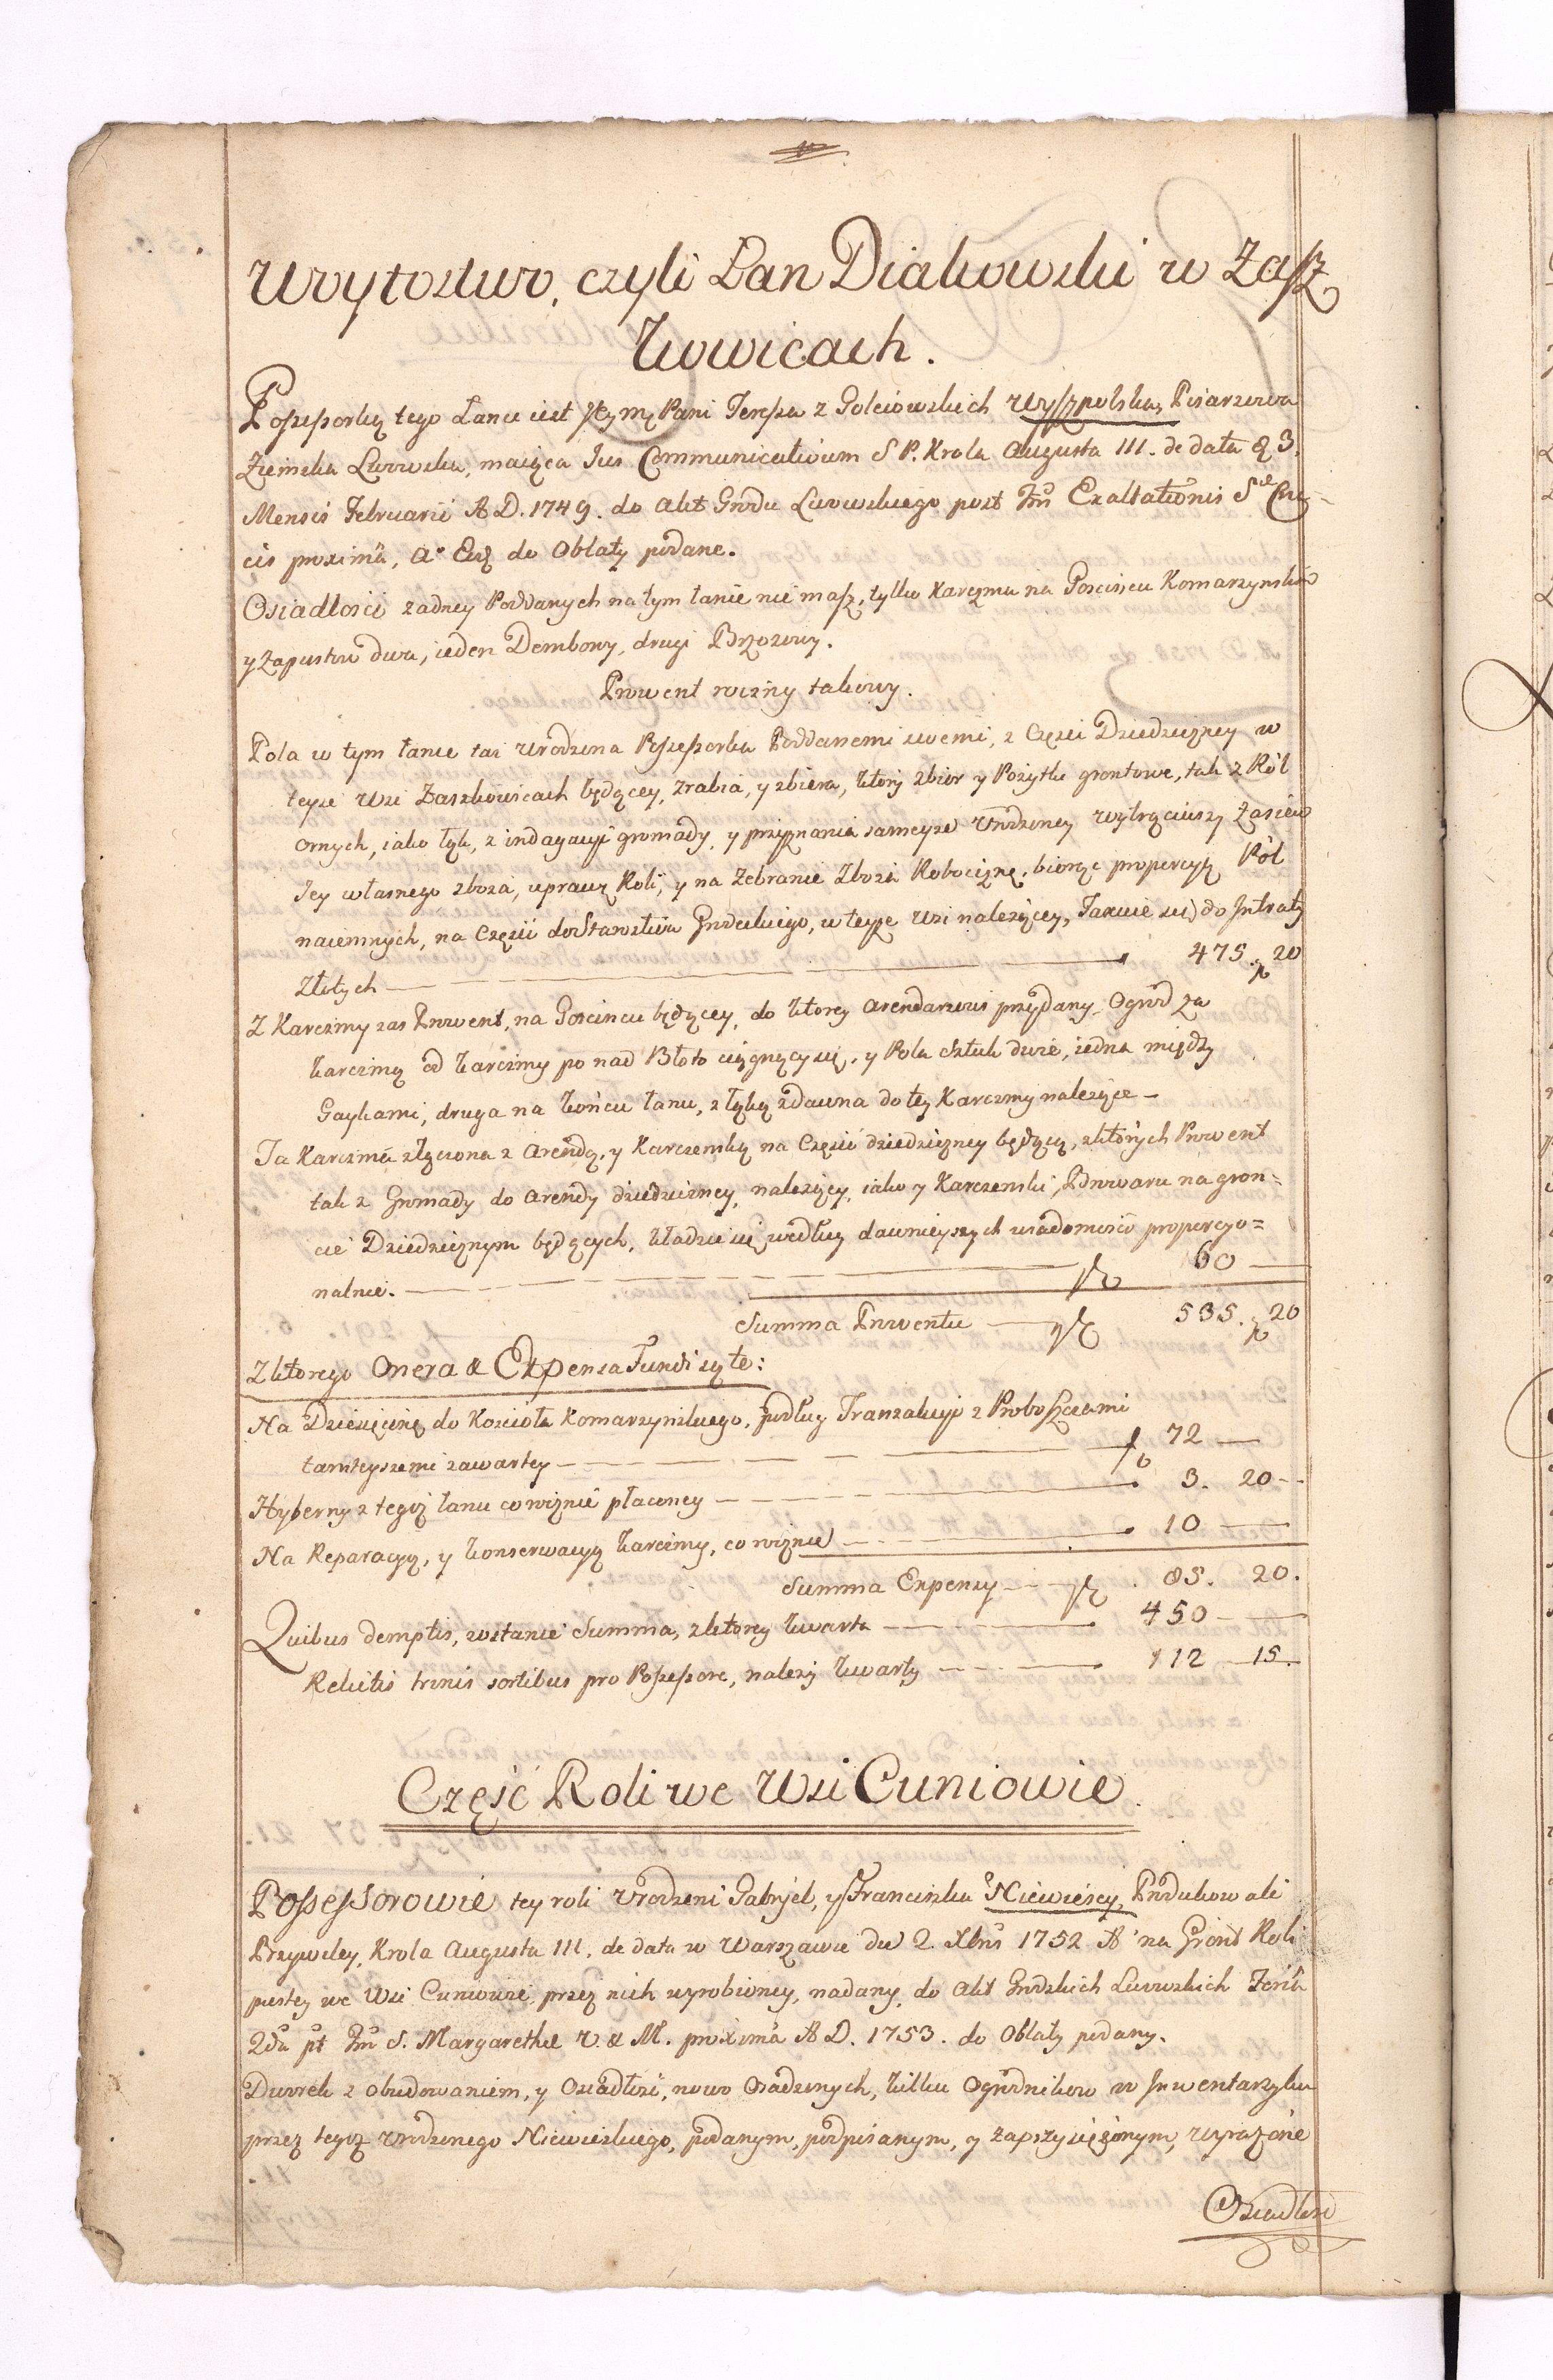 Wóytostwo, czyli Łan Diakowski w Zasz
kowicach.
Possessorką tego Łanu iest Jeymę Pani Teressa z Golciowskich Wyszpolska, Pisarzowa
Ziemska Lwowska, maiąca Jus Communicativum S P. Krola Augusta III. de data 3.
Mensis Februarii A D. 1749. do Akt Grodu Lwowskiego post Exaltationis S Cru-
cis proximâ, a° do Oblaty podane.
Osiadłości żadney Poddanych na tym łanie nie masz, tylko Karczma na Goscińcu Komarzynskim
y Zapustow dwa, ieden Dembowy, drugi Brzozowy.
Prowent roczny takowy.
Pola w tym łanie taż Urodzona Possessorka Poddanemi swemi, z Częsci Dziedziczney w
teyże Wsi Zaszkowicach będącey, zrabia, y zbiera, ktory zbior y Pożytki grontowe, tak z Ról
ornych, iako łąk, z indagacyi gromady, y przyznania sameyże Urodzoney wytrąciwszy Zasiew
Jey własnego zboża, uprawę Roli, y na Zebranie Zboża Robociznę, biorąc proporcyą Ról
naiemnych, na Częsci do Starostwa Grodeckiego, w teyże Wsi należącey, Taxuie się do Intraty
Złotych — 475. 20
Z Karczmy zas Prowent, na Goscincu będącey, do ktorey Arendarzowi przydany Ogrod za
karczmą od karczmy po nad Błoto ciągnący się, y Pola sztuk dwie, iedna między
Gaykami, druga na końcu łanu, z łąką zdawna do tey Karczmy należące —
Ta Karczma złączona z Arendą, y Karczemką na Częsci dziedziczney będącą, z ktorych Prowent
tak z Gromady do arendy dziedziczney, należącey, iako y Karczemki, Browaru na gron=
cie Dziedzicznym będących, kładzie się według dawnieyszych wiadomosci proporcyo=
nalnie. — 60 —
Summa Prowentu — 535. 20
Z ktorego Onera & Expensa Fundi są te:
Na Dziesięcinę do Kościoła Komarzynskiego, podług Tranzakcyi z Proboszczami
tamteyszemi zawartey — 72 —
Hyberny z tegoż łanu corocznie płaconey — 3. 20 —
Na Reparacyą, y konserwacyą karczmy, co rocznie — 10 —
Summa Expensy — 85. 20.
Quibus demptis, zostanie Summa, z ktorey kwarta — 450 —
Relictis trinis sortibus pro Possessore, należy kwarty — 112 15.
Część Roli we Wsi Cuniowie.
Possessorowie tey roli Urodzeni Gabryel, y Franciszka Niewiescy, Produkowali
Przywiley, Krola Augusta III. de data w Warszawie die 2. Xbris 1752 A° na Gront Roli
pustey we Wsi Cuniowie, przez nich wyrobioney, nadany, do Akt Grodzkich Lwowskich Feriâ
2dâ pt S. Margarethae V. & M. proximâ A D. 1753. do Oblaty podany.
Dworek z obudowaniem, y Osiadłosć, nowo Osadzonych, kilku Ogrodnikow w Inwentarzyku
przez tegoż Urodzonego Niewieskiego, podanym, podpisanym, y zaprzysiężonym, wyrażone
Osiadłosć